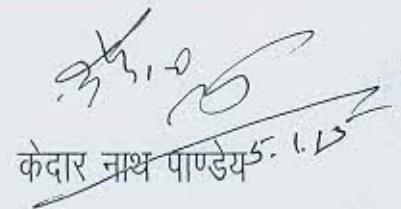 केदार नाथ पाण्डेय 5.1.13